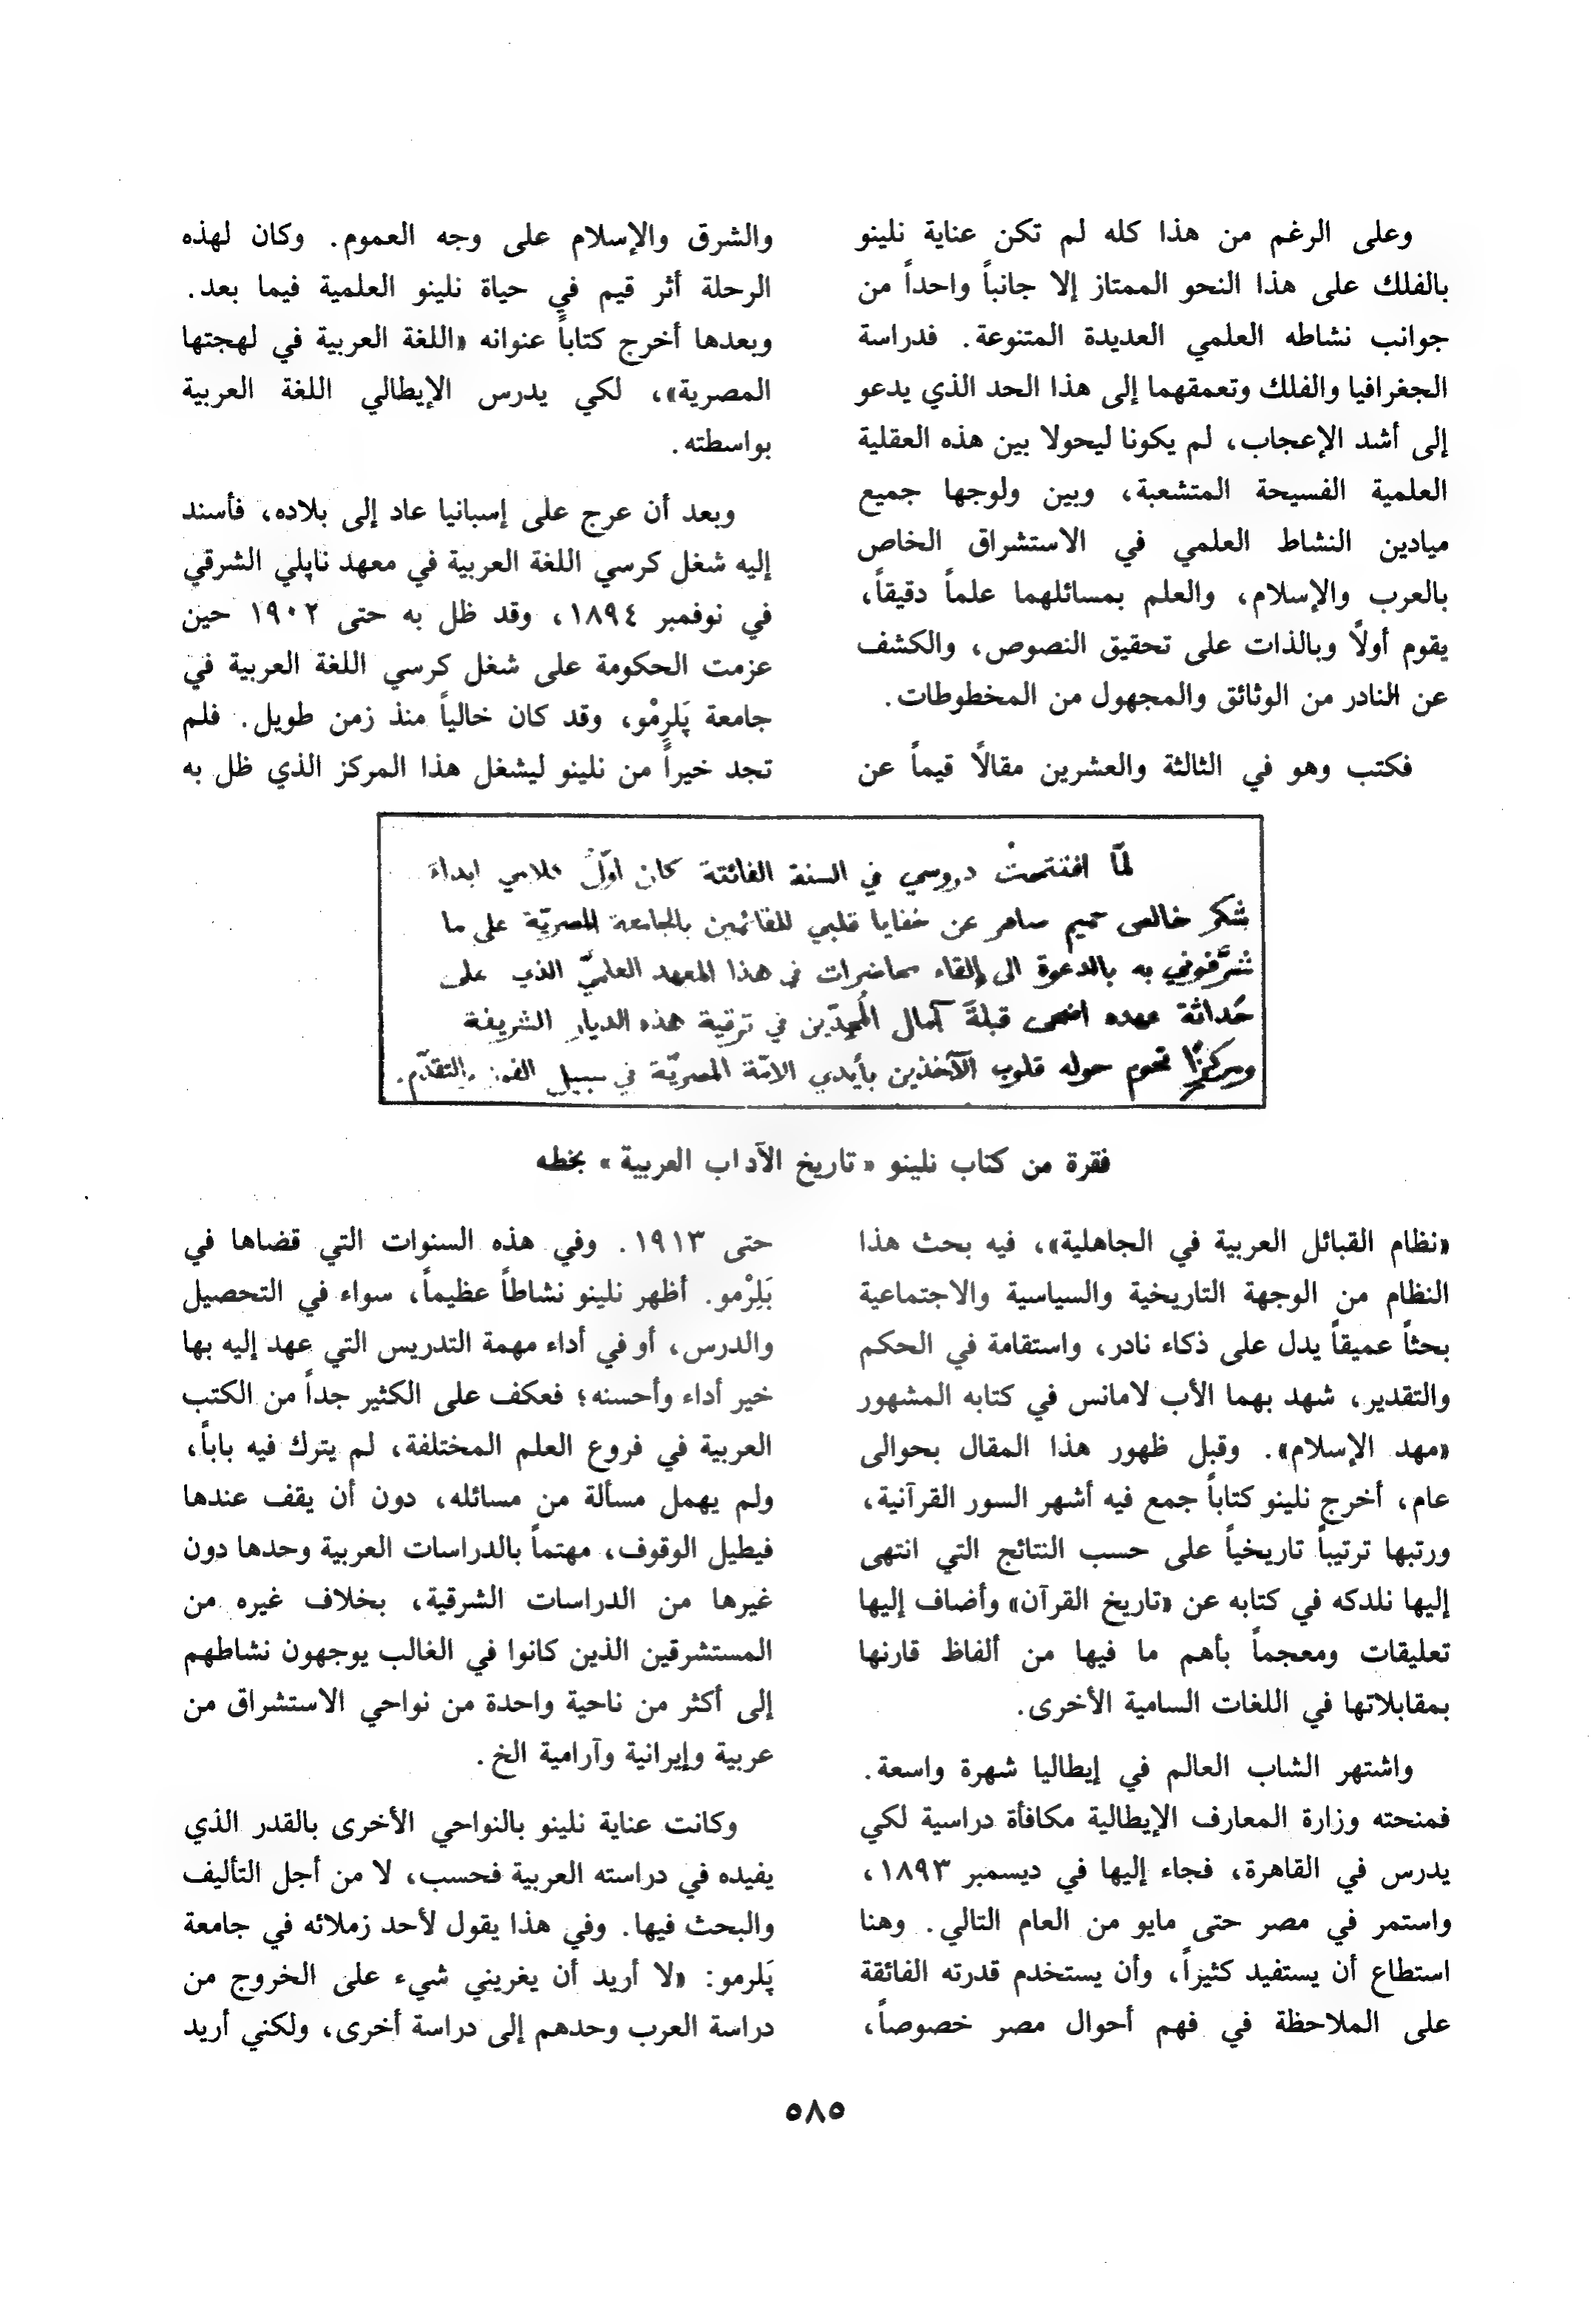 وعلى الرغم من هذا كله لم تكن عناية نلينو
بالفلك على هذا النحو الممتاز إلا جانباً واحداً من
جوانب نشاطه العلمي العديدة المتنوعة. فدراسة
الجغرافيا والفلك وتعمقهما إلى هذا الحد الذي يدعو
إلى أشد الإعجاب، لم يكونا ليحولا بين هذه العقلية
العلمية الفسيحة المتشعبة، وبين ولوجها جميع
ميادين النشاط العلمي في الاستشراق الخاص
بالعرب والإسلام، والعلم بمسائلهما علماً دقيقاً،
يقوم أولاً وبالذات على تحقيق النصوص، والكشف
عن النادر من الوثائق والمجهول من المخطوطات.
فكتب وهو في الثالثة والعشرين مقالاً قيماً عن
«نظام القبائل العربية في الجاهلية»، فيه بحث هذا
النظام من الوجهة التاريخية والسياسية والاجتماعية
بحثاً عميقاً يدل على ذكاء نادر، واستقامة في الحكم
والتقدير، شهد بهما الأب لامانس في كتابه المشهور
«مهد الإسلام». وقبل ظهور هذا المقال بحوالى
عام، أخرج نلينو كتاباً جمع فيه أشهر السور القرآنية،
ورتبها ترتيباً تاريخياً على حسب النتائج التي انتهى
إليها نلدكه في كتابه عن «تاريخ القرآن» وأضاف إليها
تعليقات ومعجماً بأهم ما فيها من ألفاظ قارنها
بمقابلاتها في اللغات السامية الأخرى.
واشتهر الشاب العالم في إيطاليا شهرة واسعة.
فمنحته وزارة المعارف الإيطالية مكافأة دراسية لكي
يدرس في القاهرة، فجاء إليها في ديسمبر ١٨٩٣،
واستمر في مصر حتى مايو من العام التالي. وهنا
استطاع أن يستفيد كثيراً، وأن يستخدم قدرته الفائقة
على الملاحظة في فهم أحوال مصر خصوصاً،
والشرق والإسلام على وجه العموم. وكان لهذه
الرحلة أثر قيم في حياة نلينو العلمية فيما بعد.
وبعدها أخرج كتاباً عنوانه «اللغة العربية في لهجتها
المصرية»، لكي يدرس الإيطالي اللغة العربية
بواسطته.
وبعد أن عرج على إسبانيا عاد إلى بلاده، فأسند
إليه شغل كرسي اللغة العربية في معهد ناپلي الشرقي
في نوفمبر ١٨٩٤، وقد ظل به حتى ١٩٠٢ حين
عزمت الحكومة على شغل كرسي اللغة العربية في
جامعة پَلرِمْو، وقد كان خالياً منذ زمن طويل. فلم
تجد خيراً من نلينو ليشغل هذا المركز الذي ظل به
حتى ١٩١٣. وفي هذه السنوات التي قضاها في
بَلِرْمو. أظهر نلينو نشاطاً عظيماً، سواء في التحصيل
والدرس، أو في أداء مهمة التدريس التي عهد إليه بها
خير أداء وأحسنه؛ فعكف على الكثير جداً من الكتب
العربية في فروع العلم المختلفة، لم يترك فيه باباً،
ولم يهمل مسألة من مسائله، دون أن يقف عندها
فيطيل الوقوف، مهتماً بالدراسات العربية وحدها دون
غيرها من الدراسات الشرقية، بخلاف غيره من
المستشرقين الذين كانوا في الغالب يوجهون نشاطهم
إلى أكثر من ناحية واحدة من نواحي الاستشراق من
عربية وإيرانية وآرامية الخ.
وكانت عناية نلينو بالنواحي الأخرى بالقدر الذي
يفيده في دراسته العربية فحسب، لا من أجل التأليف
والبحث فيها. وفي هذا يقول لأحد زملائه في جامعة
پَلرمو: «لا أريد أن يغريني شيء على الخروج من
دراسة العرب وحدهم إلى دراسة أخرى، ولكني أريد
لمّا افتتحتُ دروسي في السنة الفائتة كان اوّلُ كلامي ابداءَ
شكر خالص صميم صادر عن خفايا قلبي للقائمين بالجامعة المصريّة على ما
شرَّفوني به بالدعوة الى إلقاء محاضرات في هذا المعهد العلميّ الذي على
حَداثة عهده اضحى قبلةَ آمال المُجدّين في ترقية هذه الديار الشريفة
ومركزًا تحوم حوله قلوب الآخذين بأيدي الامّة المصريّة في سبيل الفوز والتقدّم.
فقرة من كتاب نلينو «تاريخ الآداب العربية» بخطه
٥٨٥